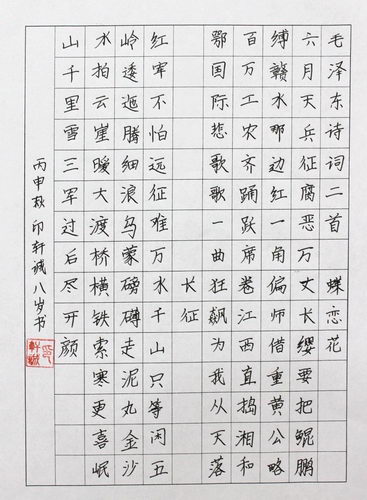 毛泽东诗词二首 蝶恋花
六月天兵征腐恶万丈长缨要把鲲鹏
缚赣水那边红一角偏师借重黄公略
百万工农齐踊跃席卷江西直捣湘和
鄂国际悲歌歌一曲狂飙为我从天落
长征
红军不怕远征难万水千山只等闲五
岭逶迤腾细浪乌蒙磅礴走泥丸金沙
水拍云崖暖大渡桥横铁索寒更喜岷
山千里雪三军过后尽开颜
丙申秋 印轩诚八岁书
印軒誠